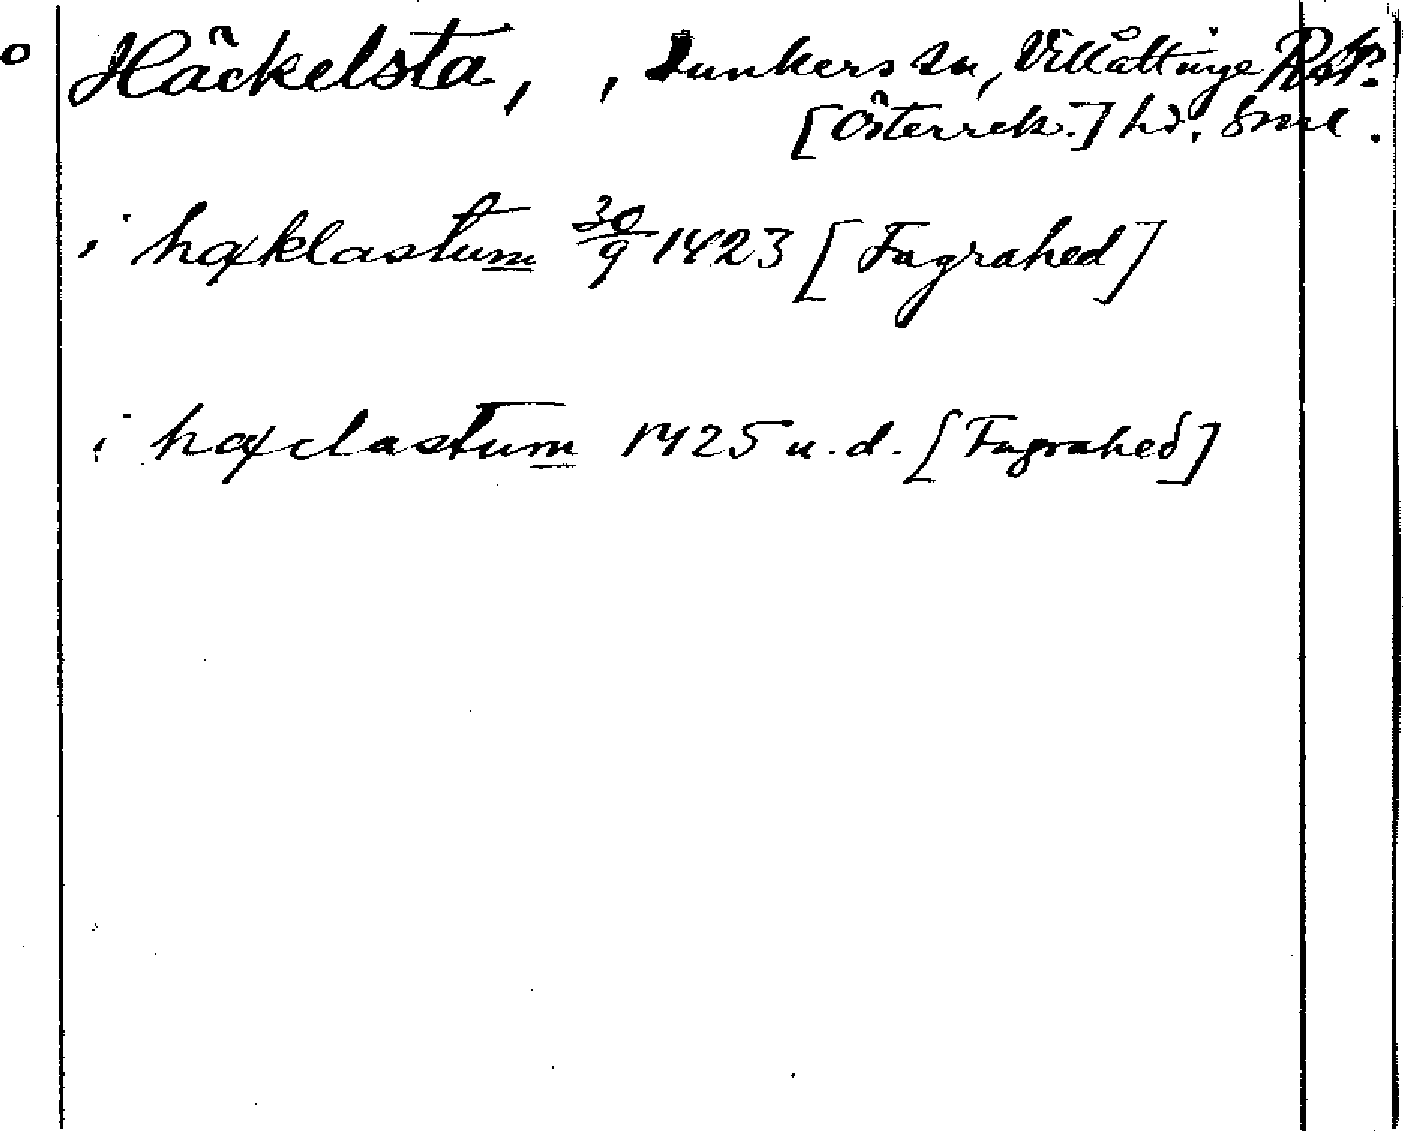 o Häckelsta, , Dunkers sn, Villåttinge
[Österrek.] hd. Sml.
i hæklastum 30/9 1423 [Fagrahed]
i hæclastum 1425 u.d. [Fagrahed]